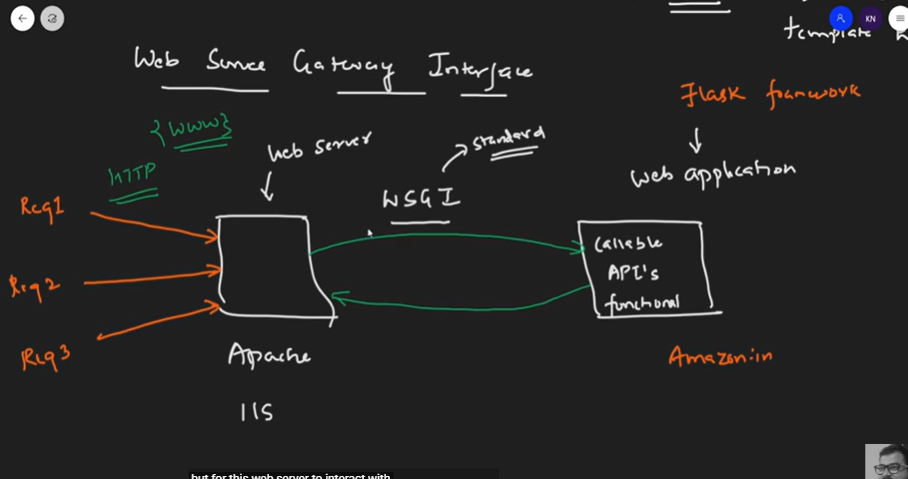 KN
template
Web Server Gateway Interface
Flask framework
{WWW}
standard
web server
HTTP
web application
WSGI
Req1
callable
API's
Req2
functional
Req3
Apache
Amazon.in
IIS
but for this web server to interact with